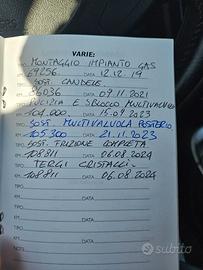 VARIE:
TIPO MONTAGGIO IMPIANTO GAS
KM 69256 DATA 12.12.19
TIPO SOST. CANDELE
KM 96036 DATA 07.11.2021
PULIZIA E SBLOCCO MULTIVALVOLA
KM 104.000 DATA 15.09.2023
TIPO SOST. MULTIVALVOLA POSTERIO
KM 105300 DATA 21.11.2023
TIPO SOST. FRIZIONE COMPLETA
KM 108811 DATA 06.08.2024
TIPO TERGI CRISTALLI
KM 108811 DATA 06.08.2024
TIPO
KM DATA
TIPO
KM DATA
TIPO
KM DATA
NOTE
subito